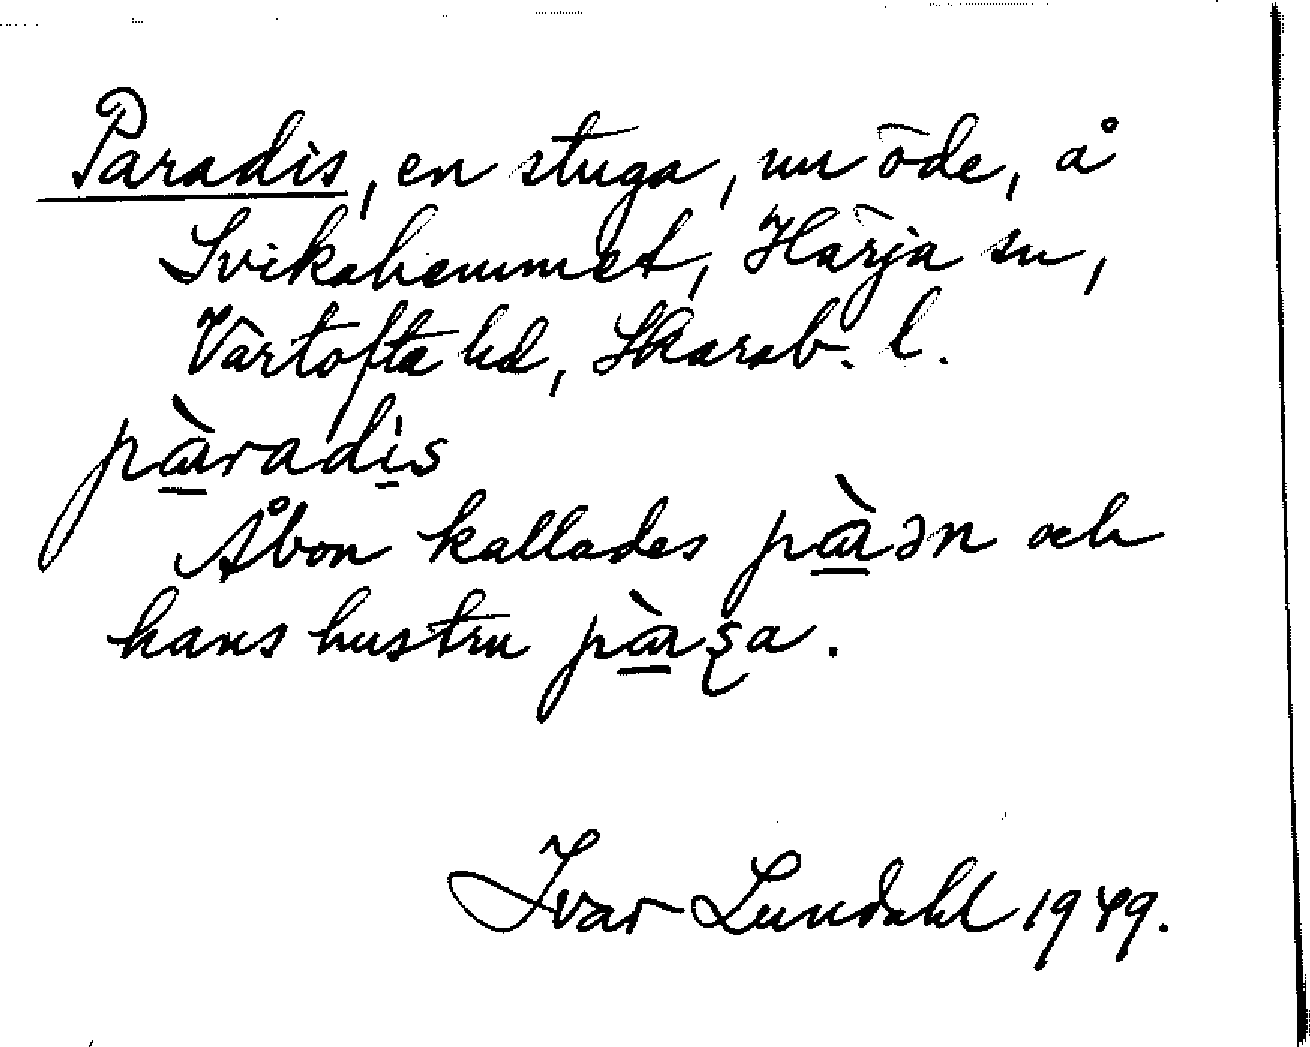 Paradis, en stuga, nu öde, å
Svikahemmet, Härja sn,
Vartofta hd, Skarab. l.
pàradis
Åbon kallades pàən och
hans hustru pàʂa.
Ivar Lundahl 1949.